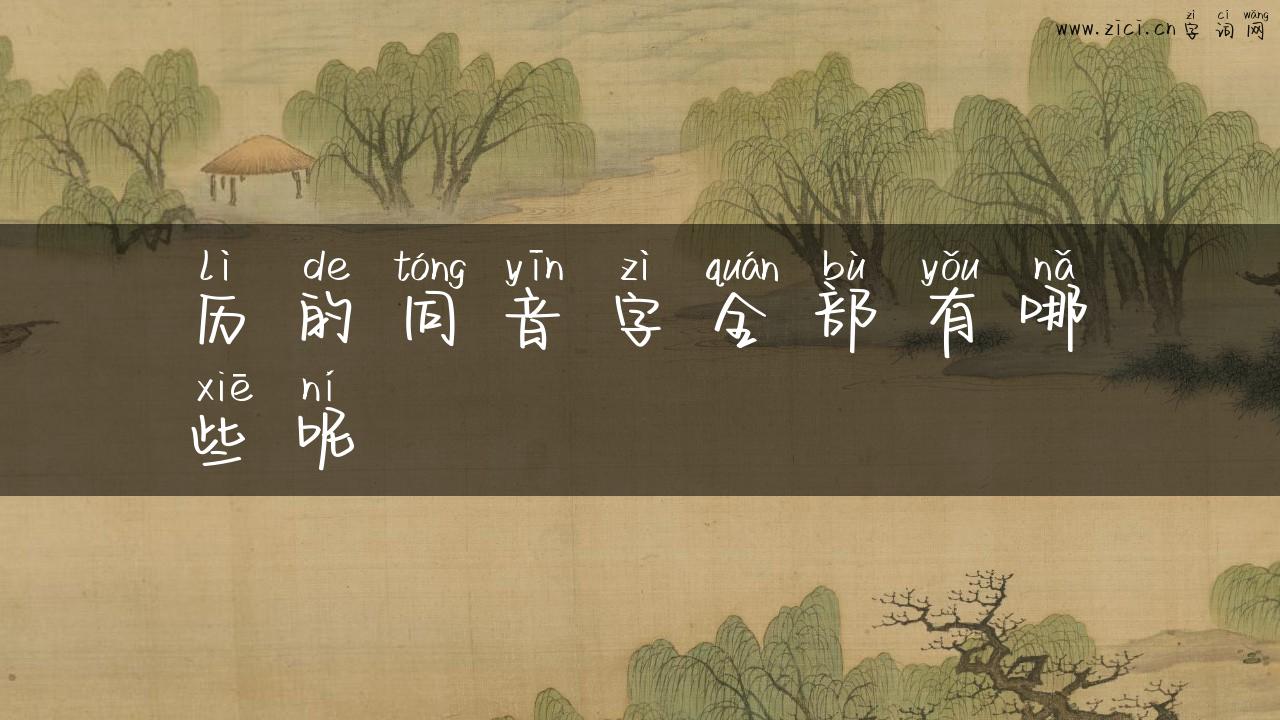 zì cí wǎng
www.zici.cn 字 词 网
lì de tóng yīn zì quán bù yǒu nǎ
历 的 同 音 字 全 部 有 哪
xiē ní
些 呢